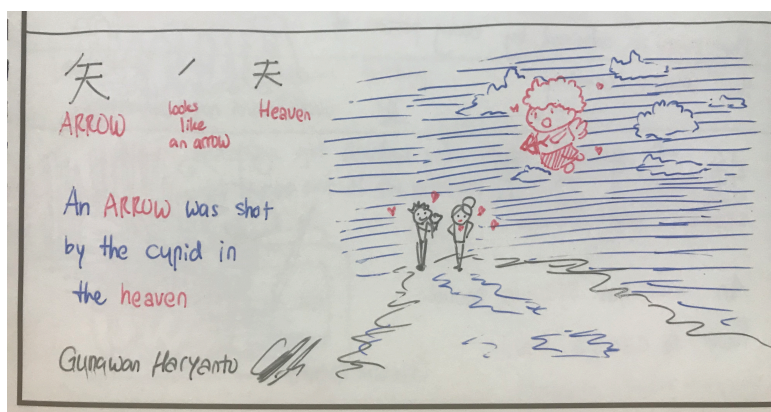 矢 ノ 天
ARROW looks like an arrow Heaven
An ARROW was shot
by the cupid in
the heaven
Gunawan Haryanto